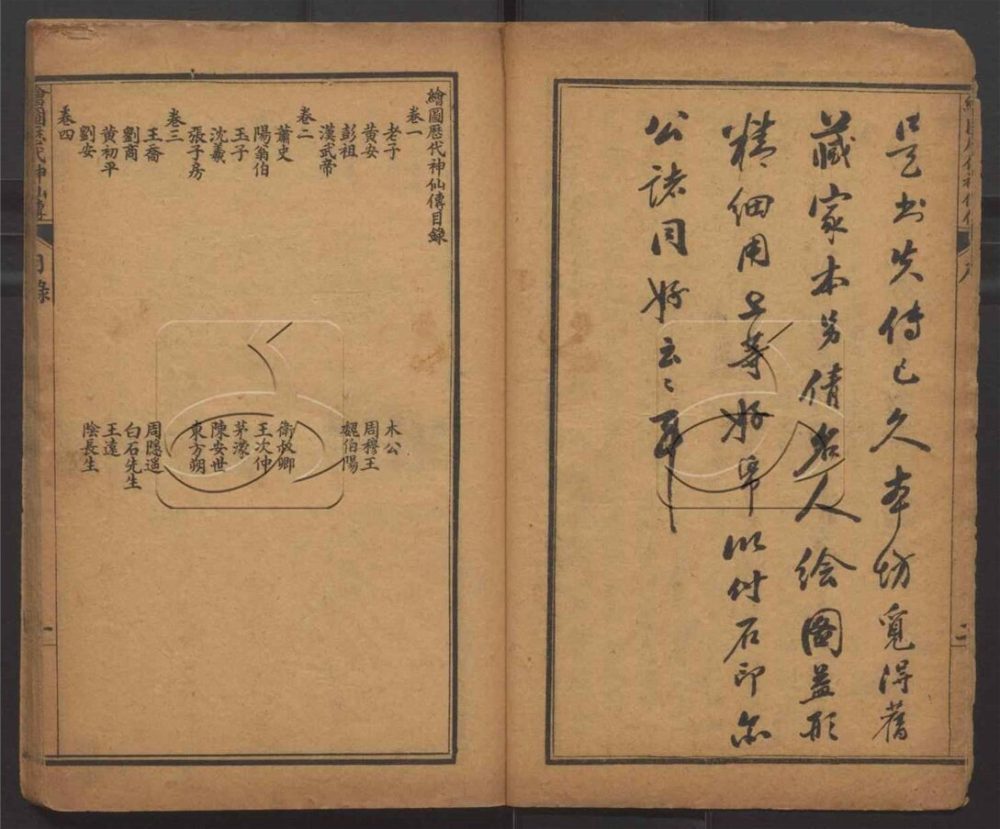 是书失傳已久本坊覓得舊
藏家本另倩名人绘圖益形
精細用上等好帋以付石印亦
公諸同好云〻耳
二
繪圖歷代神仙傳目錄
卷一
老子 木公
黃安 周穆王
彭祖 魏伯陽
漢武帝
卷二
蕭史 衛叔卿
陽翁伯 王次仲
玉子 茅濛
沈羲 陳安世
張子房 東方朔
卷三
王喬 周隱遥
劉商 白石先生
黃初平 王遠
劉安 陰長生
卷四
繪圖歷代神仙傳 目錄 一